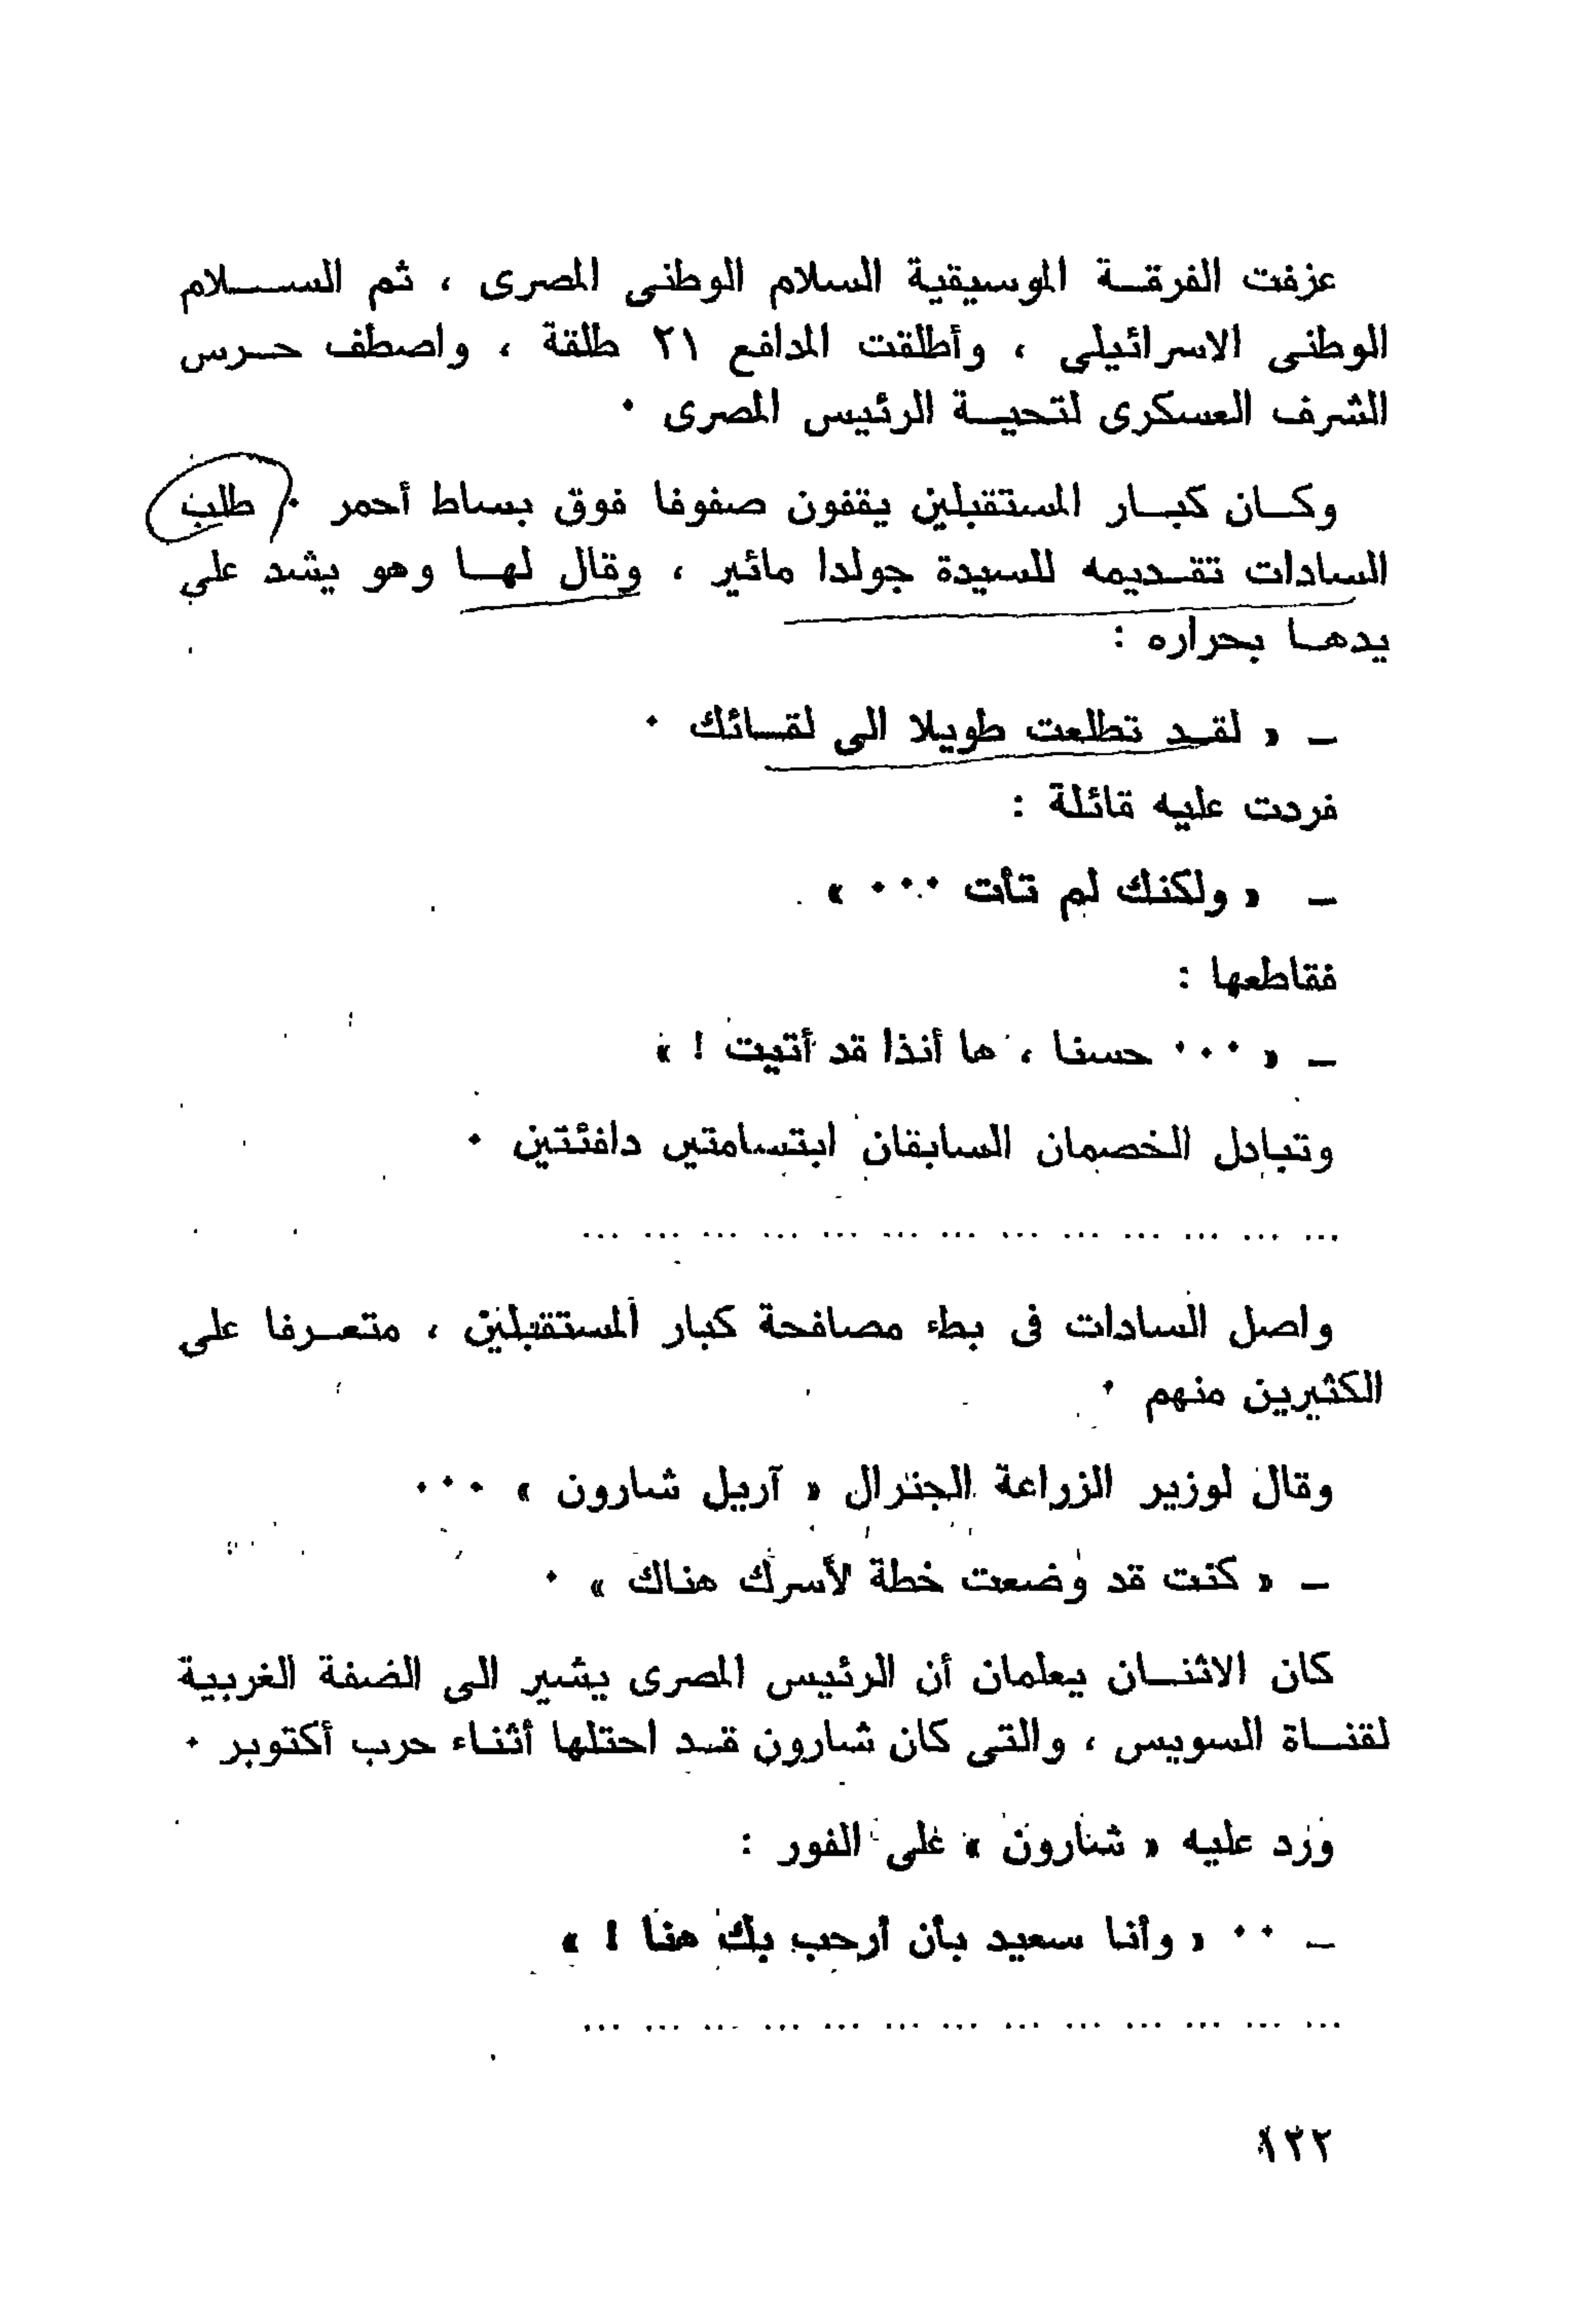 عزفت الفرقة الموسيقية السلام الوطنى المصرى ، ثم السلام
الوطنى الاسرائيلى ، وأطلقت المدافع ٢١ طلقة ، واصطف حرس
الشرف العسكرى لتحية الرئيس المصرى ٠
وكان كبار المستقبلين يقفون صفوفا فوق بساط أحمر ٠ طلب
السادات تقديمه للسيدة جولدا مائير ، وقال لها وهو يشد على
يدها بحراره :
ــ « لقد تطلعت طويلا الى لقائك ٠
فردت عليه قائلة :
ــ « ولكنك لم تأت ٠٠٠ »
فقاطعها :
ــ « ٠٠٠ حسنا ، ها أنذا قد أتيت ! »
وتبادل الخصمان السابقان ابتسامتين دافئتين ٠
... ... ... ... ... ... ... ... ... ... ... ... ...
واصل السادات فى بطء مصافحة كبار المستقبلين ، متعرفا على
الكثيرين منهم ٠
وقال لوزير الزراعة الجنرال « آريل شارون » ٠٠٠
ــ « كنت قد وضعت خطة لأسرك هناك » ٠
كان الاثنان يعلمان أن الرئيس المصرى يشير الى الضفة الغربية
لقناة السويس ، والتى كان شارون قد احتلها أثناء حرب أكتوبر ٠
ورد عليه « شارون » على الفور :
ــ ٠٠ « وأنا سعيد بأن أرحب بك هنا ! »
... ... ... ... ... ... ... ... ... ... ... ... ...
١٣٢